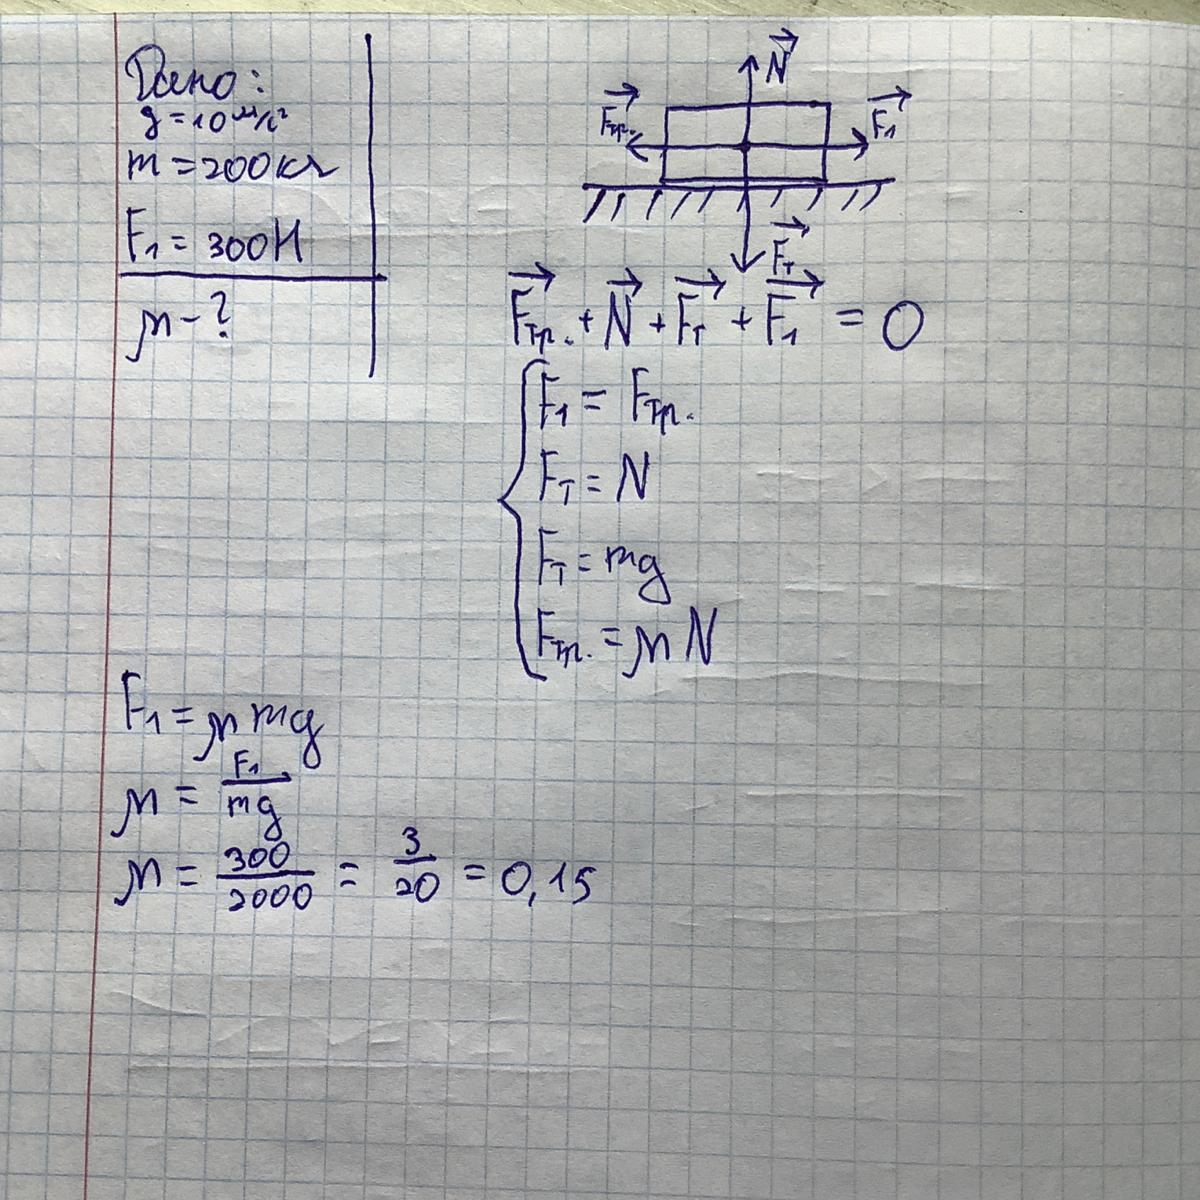 Дано:
g = 10 м/с²
m = 200 кг
F₁ = 300 Н
μ - ?
N
Fтр.
F₁
Fт
Fтр. + N + Fт + F₁ = 0
F₁ = Fтр.
Fт = N
Fт = mg
Fтр. = μN
F₁ = μmg
μ = F₁/mg
μ = 300/2000 = 3/20 = 0,15